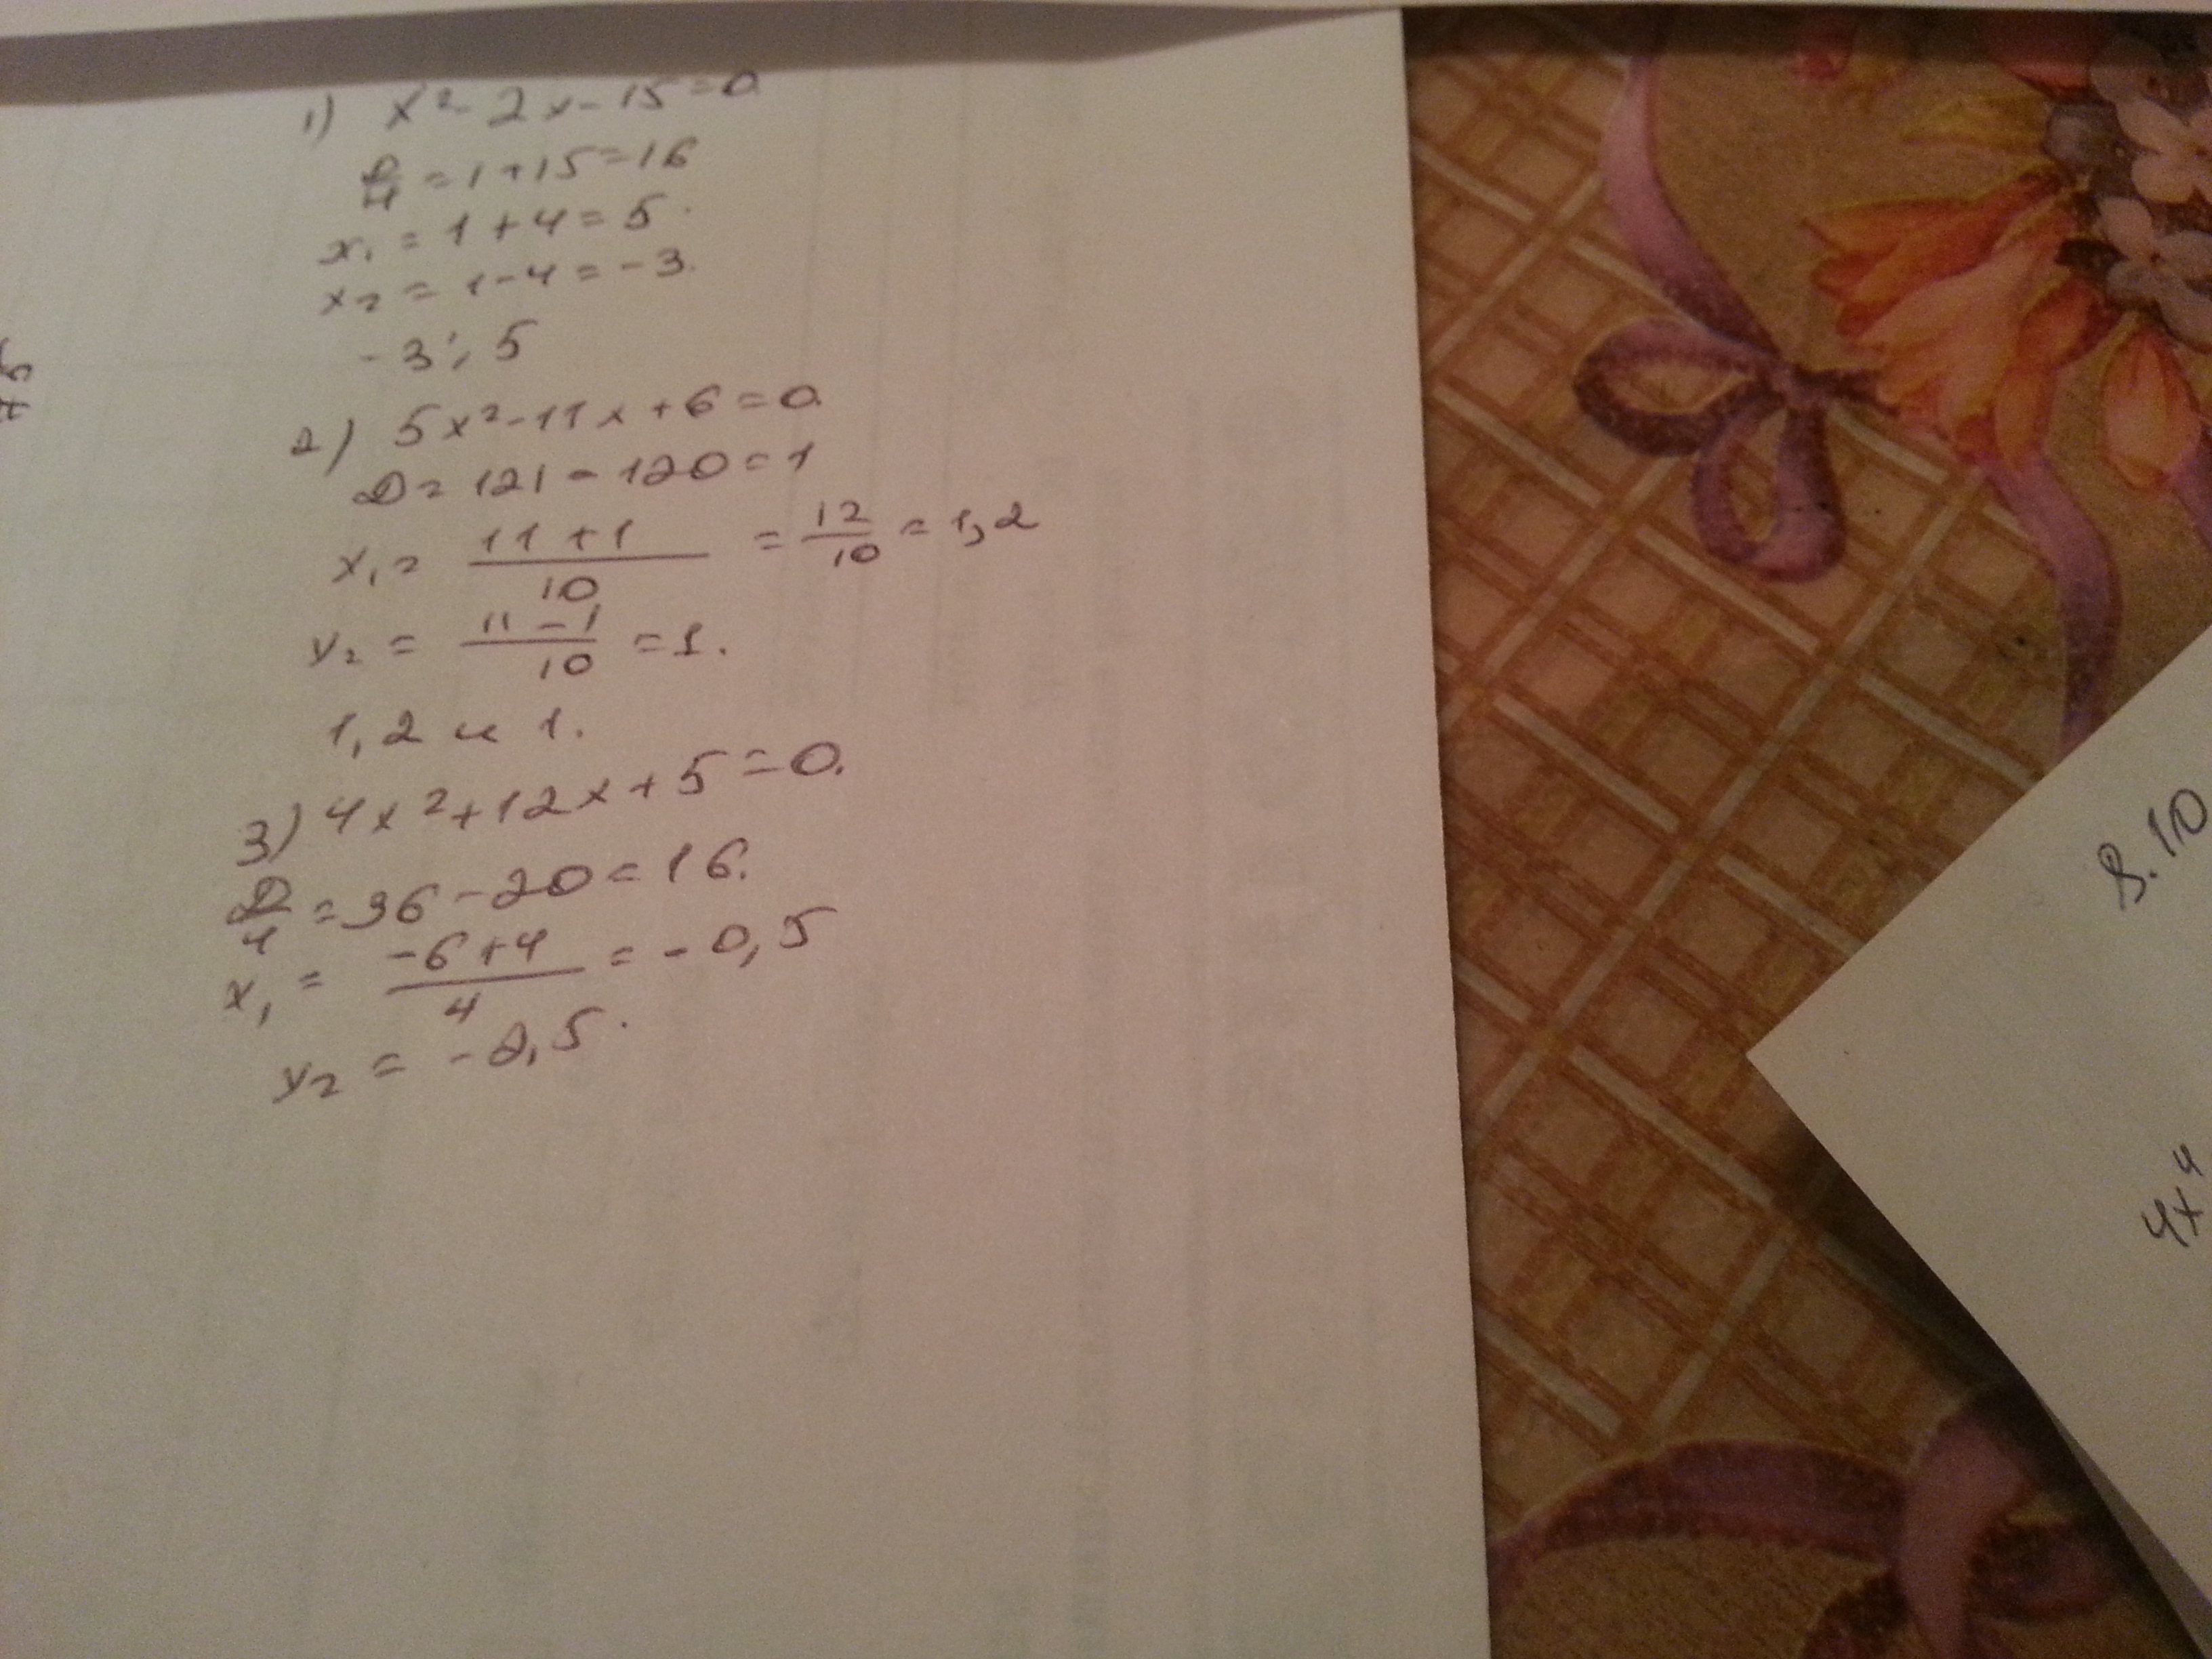 1) x²-2x-15=0
D/4=1+15=16
x₁=1+4=5.
x₂=1-4=-3.
-3; 5
2) 5x²-11x+6=0.
D=121-120=1
x₁= (11+1)/10 = 12/10 = 1,2
x₂= (11-1)/10 =1.
1,2 и 1.
3) 4x²+12x+5=0.
D/4=36-20=16.
x₁= (-6+4)/4 = -0,5
x₂= -2,5.
8.10
4x⁴